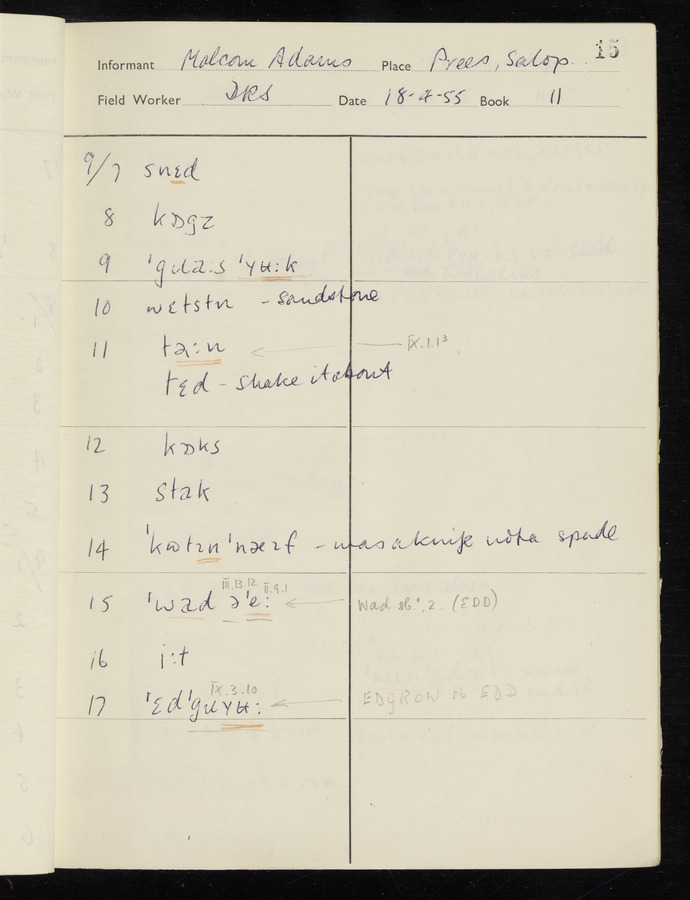 15
Informant Malcom Adams Place Prees, Salop.
Field Worker DRS Date 18-4-55 Book 11
9/7 snɛd
8 kɒgz
9 ˈgɹaːs ˈʏʉːk
10 wɛtstn - sandstone
11 təːn IX.1.13
tɛd - shake it about
12 kɒks
13 stak
14 - was a knife not a spade
III.13.12 II.9.1
15 ˈwad əˈeː wad sb.¹, 2. (EDD)
16 iːt
IX.3.10
17 ˈɛdˈgɹʏʉː EDGROW sb EDD